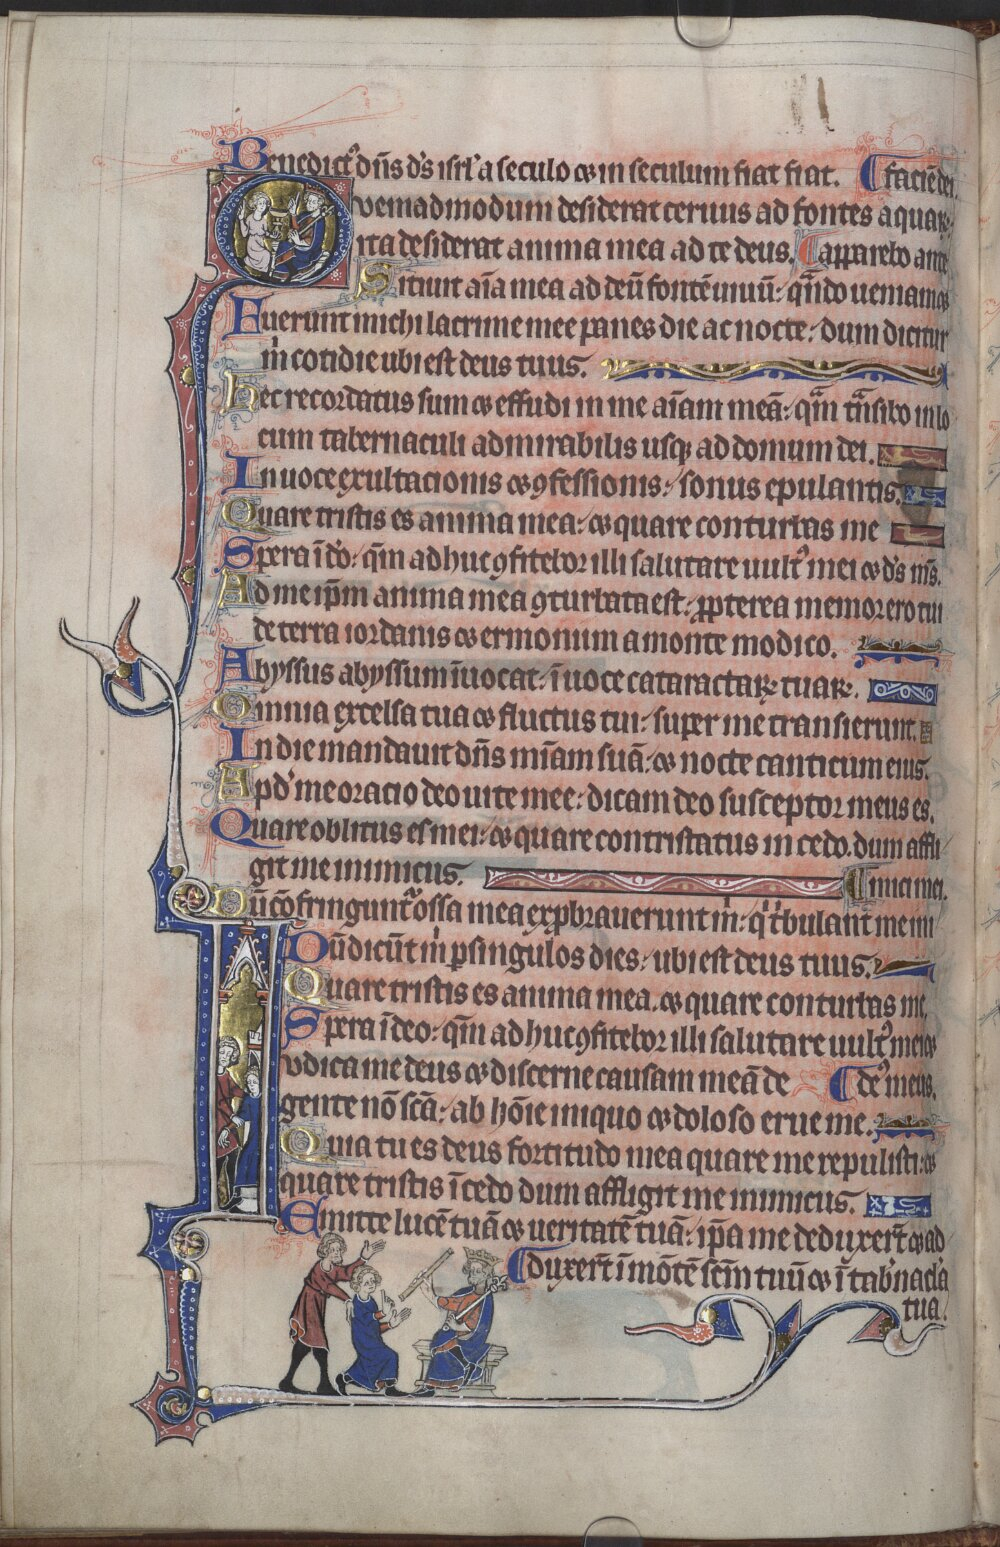 Benedict' dn̄s d's isrl' a seculo ⁊ in seculum fiat fiat. faciē dei.
Quemadmodum desiderat ceruus ad fontes aquaꝝ:
ita desiderat anima mea ad te deus. apparebo ante
Sitiuit aīa mea ad deū fontē uiuū: qn̄do ueniam ⁊
Fuerunt michi lacrime mee panes die ac nocte: dum dicitur
m̍ cotidie ubi est deus tuus.
hec recordatus sum ⁊ effudi in me aīam meā: qm̄ tn̄sibo in lo
cum tabernaculi admirabilis usqꝫ ad domum dei.
In uoce exultacionis ⁊ ꝯfessionis: sonus epulantis.
Quare tristis es anima mea: ⁊ quare conturbas me
Spera ī d'o: qm̄ adhuc ꝯfitebor illi salutare uult' mei ⁊ d's m's.
Ad me ip̄m anima mea ꝯturbata est: ꝓpterea memor ero tui
de terra iordanis ⁊ ermonium a monte modico.
Abyssus abyssum īuocat: ī uoce cataractaꝝ tuaꝝ.
Omnia excelsa tua ⁊ fluctus tui: super me transierunt.
In die mandauit dn̄s mīam suā: ⁊ nocte canticum eius.
Apd' me oracio deo uite mee: dicam deo susceptor meus es.
Quare oblitus es mei: ⁊ quare contristatus incedo. dum affli
git me inimicus. inimici mei.
Dū cōfringunt' ossa mea expbrauerunt m̍: q' t'bulant me in
Dū dicūt m̍ ꝑ singulos dies: ubi est deus tuus.
Quare tristis es anima mea. ⁊ quare conturbas me.
Spera ī deo: qm̄ adhuc ꝯfitebor illi salutare uult' mei ⁊
Iudica me deus ⁊ discerne causam meā de de' meus.
gente nō scā: ab hōie iniquo ⁊ doloso erue me.
Quia tu es deus fortitudo mea quare me repulisti: ⁊
quare tristis īcedo dum affligit me inimicus.
Emitte lucē tuā ⁊ ueritatē tuā: ip̄a me deduxert' ⁊ ad
duxert' ī mōtē scm̄ tuū ⁊ ī tab'nacl'a
tua.